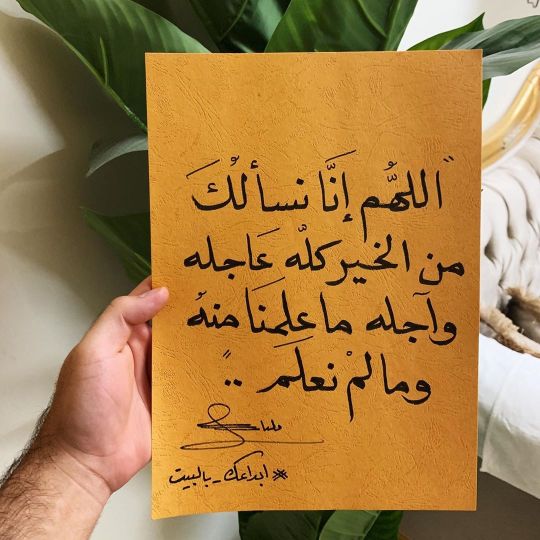 "اللهُم إنَّا نسألُكَ
من الخير كلّه عَاجله
وآجله ما علِمنَا منهُ
وما لمْ نعلَم .."
#ابداعك_بالبيت